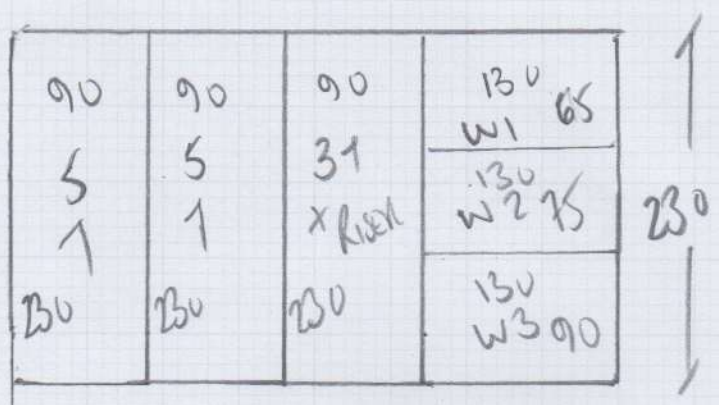 90
5
1
230
90
5
1
230
90
31
x RISER
230
130
W1 65
130
W2 75
130
W3 90
230